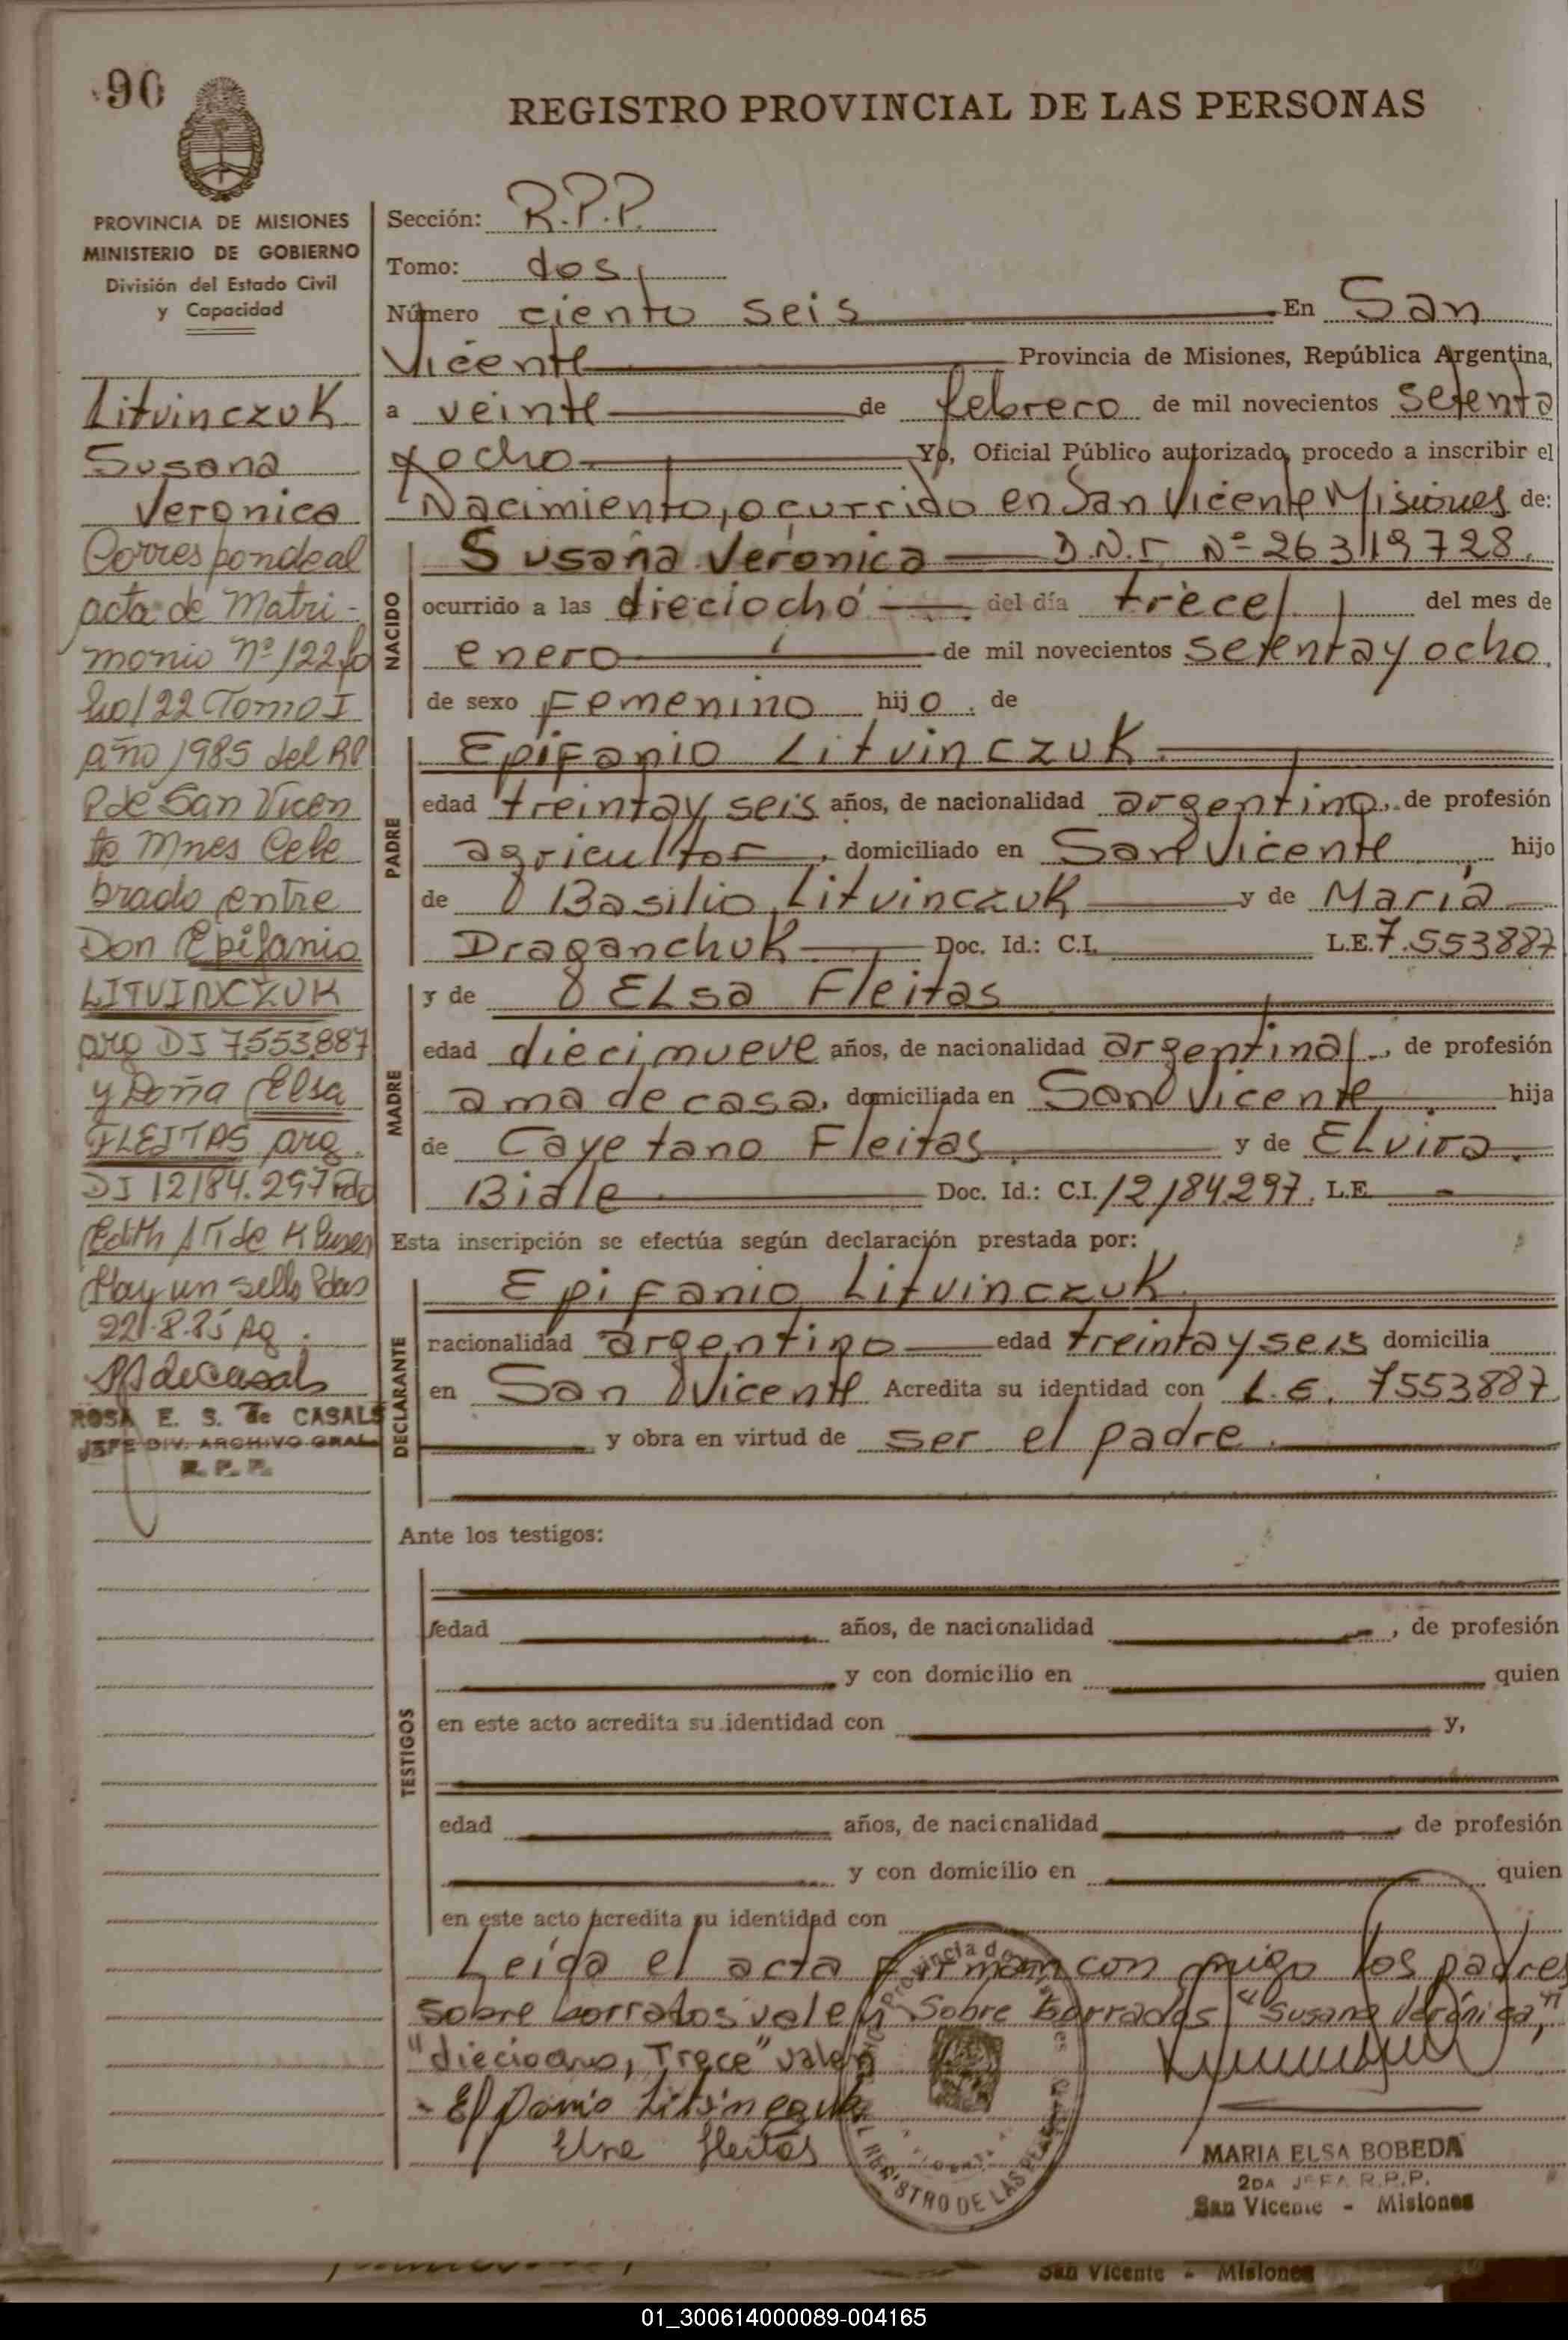 90
REGISTRO PROVINCIAL DE LAS PERSONAS
PROVINCIA DE MISIONES
MINISTERIO DE GOBIERNO
División del Estado Civil
y Capacidad
Litvinczuk
Susana
Veronica
Corresponde al
acta de Matri-
monio Nº 122 fo
lio 122 Tomo I
año 1985 del RP
P de San Vicen
te Mnes Cele
brado entre
Don Epifanio
LITVINCZUK
arg DI 7553887
y Doña Elsa
FLEITAS arg.
DI 12184.297 Fdo
Edith
Hay un sello Pdas
22.8.85
ROSA E. S. de CASALS
JEFE DIV. ARCHIVO GRAL
R. P. P.
Sección: R.P.P.
Tomo: dos
Número ciento seis En San
Vicente Provincia de Misiones, República Argentina,
a veinte de febrero de mil novecientos setenta
y ocho Yo, Oficial Público autorizado, procedo a inscribir el
Nacimiento, ocurrido en San Vicente Misiones de:
NACIDO
Susana Veronica D.N.I. Nº 26319728.
ocurrido a las dieciocho del día trece del mes de
enero de mil novecientos setenta y ocho.
de sexo Femenino hijo. de
PADRE
Epifanio Litvinczuk.
edad treinta y seis años, de nacionalidad argentino, de profesión
agricultor, domiciliado en San Vicente hijo
de Basilio Litvinczuk y de Maria
Draganchuk Doc. Id.: C.I. L.E. 7.553887
MADRE
y de Elsa Fleitas
edad diecinueve años, de nacionalidad argentina, de profesión
ama de casa, domiciliada en San Vicente hija
de Cayetano Fleitas y de Elvira
Biale Doc. Id.: C.I. 12184297. L.E. -
Esta inscripción se efectúa según declaración prestada por:
DECLARANTE
Epifanio Litvinczuk.
nacionalidad argentino edad treinta y seis domicilia
en San Vicente Acredita su identidad con L.E. 7553887
y obra en virtud de ser el padre.
Ante los testigos:
TESTIGOS
edad años, de nacionalidad , de profesión
y con domicilio en quien
en este acto acredita su identidad con y,
edad años, de nacionalidad de profesión
y con domicilio en quien
en este acto acredita su identidad con
Leida el acta firman con migo los padres
sobre borrados valen Sobre borrados "Susana Verónica,"
"dieciocho, Trece" valen
Epifanio Litvinczuk
Elsa Fleitas
REGISTRO DE LAS PERSONAS
MARIA ELSA BOBEDA
2DA JEFA R.P.P.
San Vicente - Misiones
San Vicente - Misiones
01_300614000089-004165